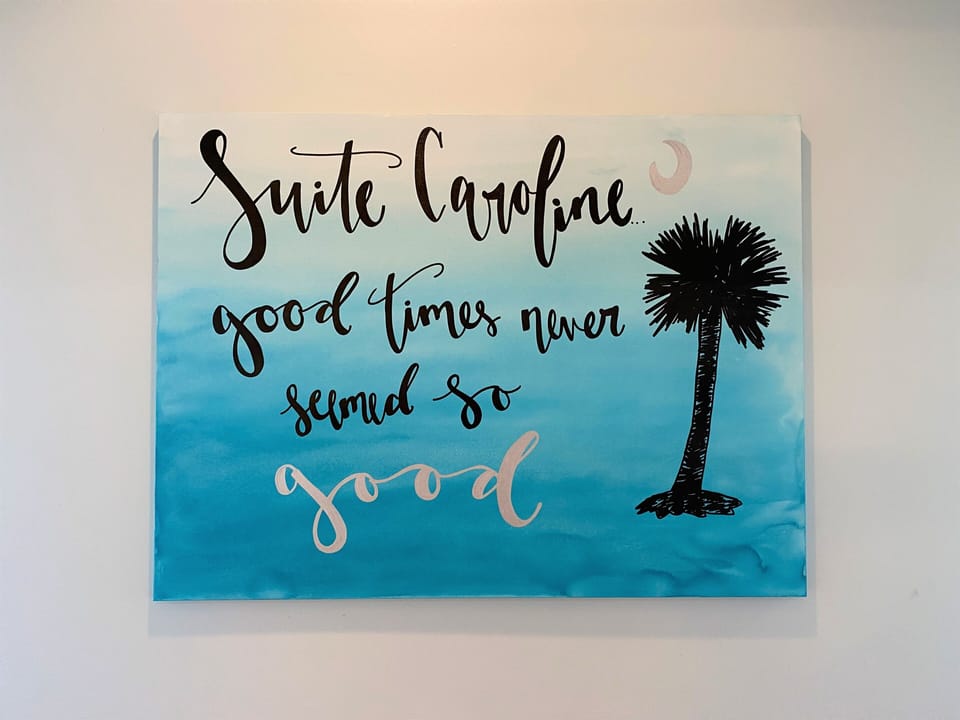 Suite Caroline...
good times never
seemed so
good